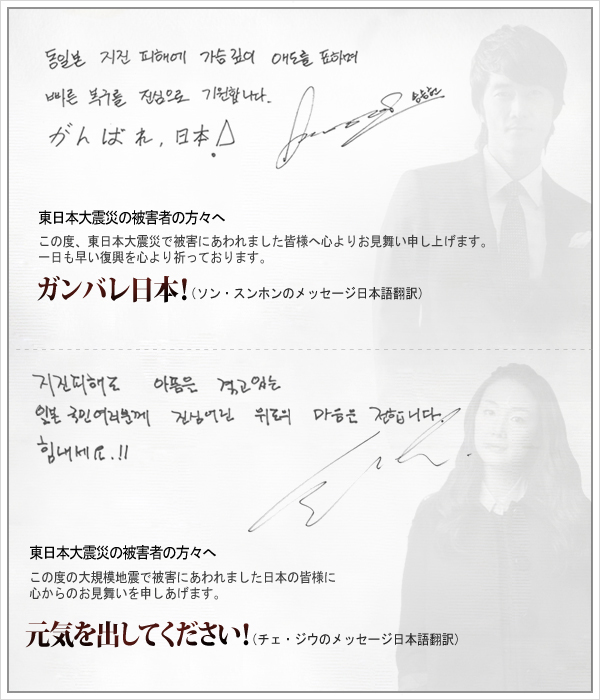 동일본 지진 피해에 가슴깊이 애도를 표하며
빠른 복구를 진심으로 기원합니다.
がんばれ, 日本!
송승헌
東日本大震災の被害者の方々へ
この度、東日本大震災で被害にあわれました皆様へ心よりお見舞い申し上げます。
一日も早い復興を心より祈っております。
ガンバレ日本!(ソン・スンホンのメッセージ日本語翻訳)
지진피해로 아픔은 겪고있는
일본 국민여러분께 진심어린 위로의 마음은 전합니다.
힘내세요.!!
東日本大震災の被害者の方々へ
この度の大規模地震で被害にあわれました日本の皆様に
心からのお見舞いを申しあげます。
元気を出してください!(チェ・ジウのメッセージ日本語翻訳)